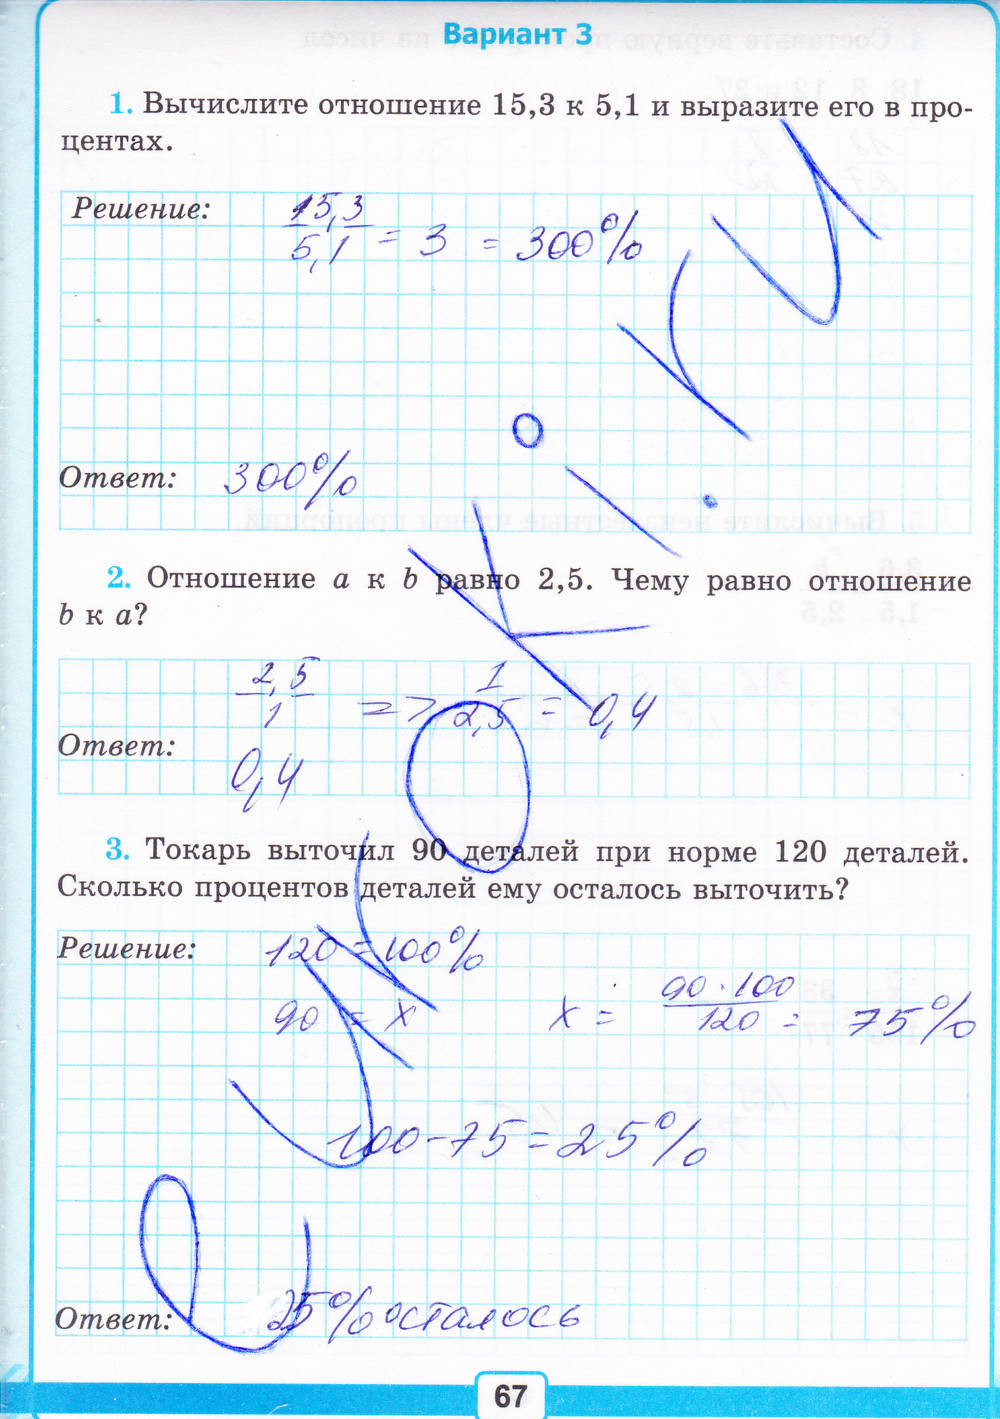 Вариант 3
1. Вычислите отношение 15,3 к 5,1 и выразите его в про-
центах.
Решение: 15,3/5,1 = 3 = 300%
Ответ: 300%
2. Отношение a к b равно 2,5. Чему равно отношение
b к a?
2,5/1 => 1/2,5 = 0,4
Ответ: 0,4
3. Токарь выточил 90 деталей при норме 120 деталей.
Сколько процентов деталей ему осталось выточить?
Решение: 120 = 100%
90 = x x = 90·100/120 = 75%
100-75=25%
Ответ: 25% осталось
67